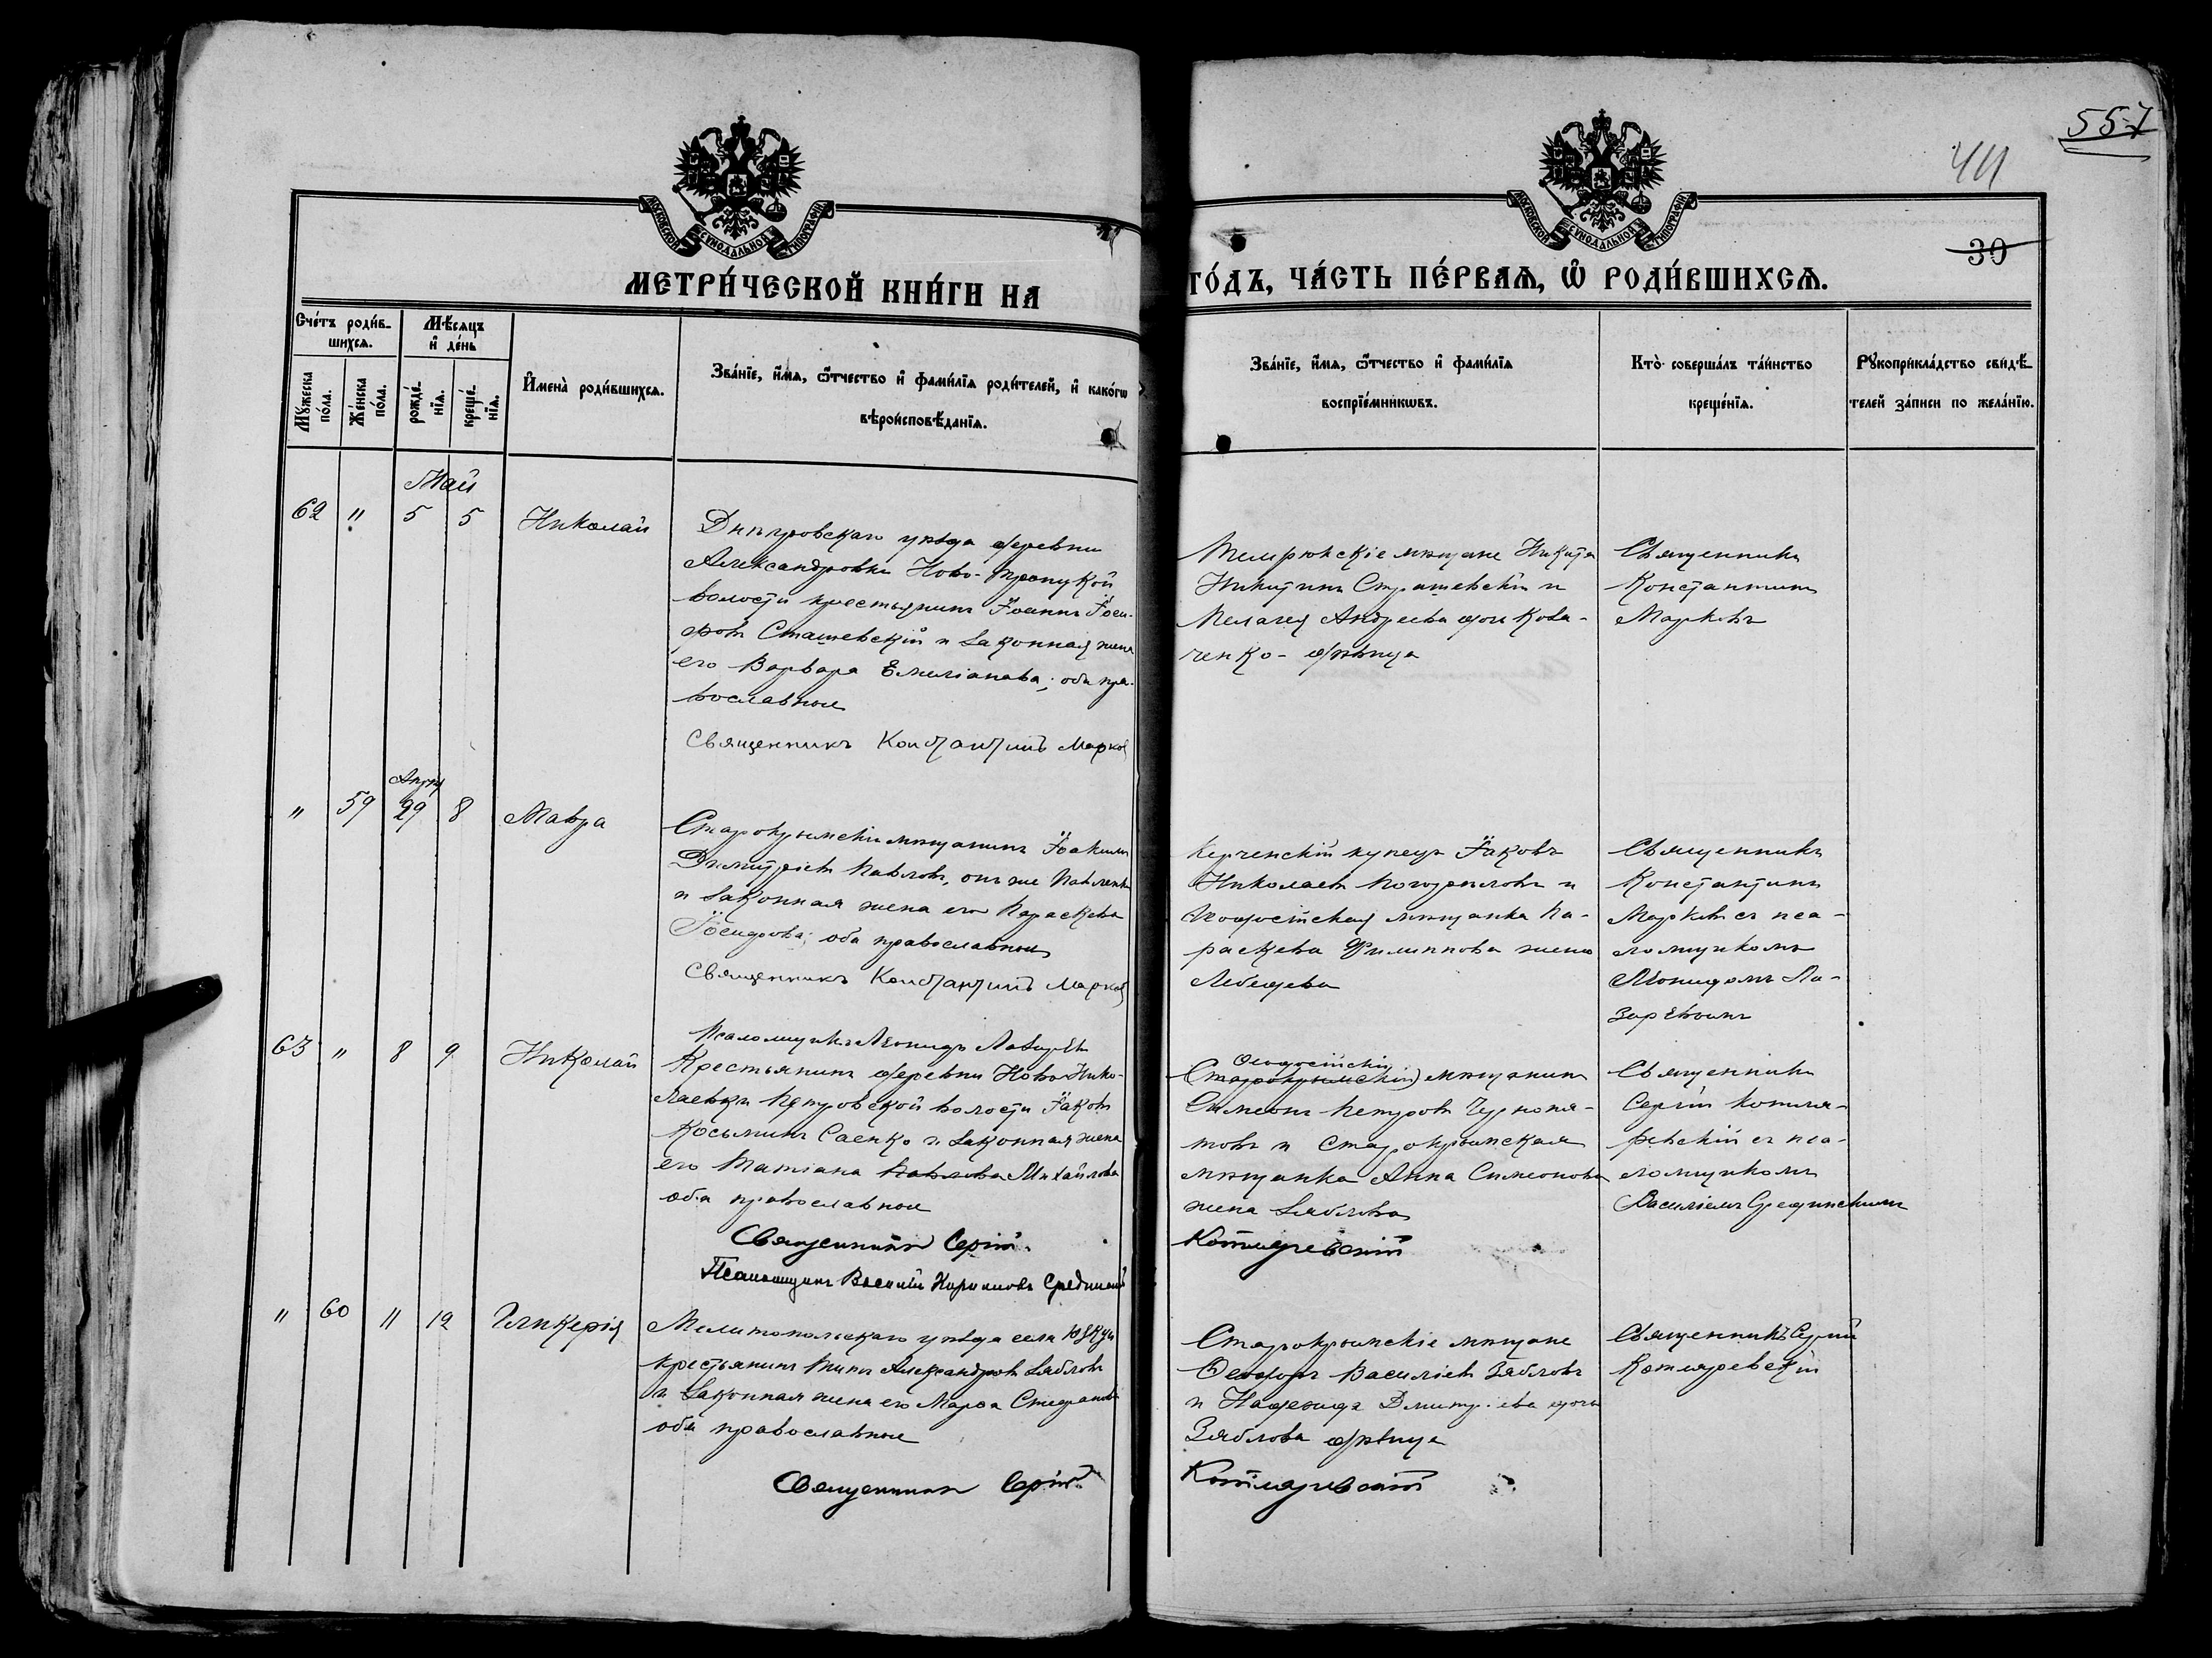 557
411
30
МОСКОВСКОЙ СѴНОДАЛЬНОЙ ТИПОГРАФІИ
МОСКОВСКОЙ СѴНОДАЛЬНОЙ ТИПОГРАФІИ
МЕТРИ́ЧЕСКОЙ КНИ́ГИ НА
ГО́ДЪ, ЧА́СТЬ ПЕ́РВАѦ, Ѡ҆ РОДИ́ВШИХСѦ.
Сче́тъ роди́в-
шихсѧ.
Мѣ́сѧцъ
и҆ де́нь
Мꙋ́жеска
по́ла.
Же́нска
по́ла.
рожде́-
нїѧ.
креще́-
нїѧ.
И҆мена̀ роди́вшихсѧ.
Зва́нїе, и҆́мѧ, ѻ҆́тчество и҆ фами́лїѧ роди́телей, и҆ како́гѡ
вѣроисповѣ́данїѧ.
Зва́нїе, и҆́мѧ, ѻ҆́тчество и҆ фами́лїѧ
воспрїе́мникѡвъ.
Кто̀ соверша́лъ та́инство
креще́нїѧ.
Рꙋкоприкла́дство свидѣ́-
телей за́писи по жела́нїю.
Май
62 " 5 5 Николай
Днѣпровскаго уѣзда деревни
Александровки Ново-Троицкой
волости крестьянинъ Іоаннъ Іоси-
фовъ Сташевскій и законная жена
его Варвара Емиліанова; оба пра-
вославные
Священникъ Константинъ Марковъ
Темрюкскіе мѣщане Никита
Никитинъ Сташевскій и
Пелагея Андреева дочь Кова-
ченко - дѣвица
Священникъ
Константинъ
Марковъ
Апрѣ
" 59 29 8 Мавра
Старокрымскій мѣщанинъ Іоакимъ
Димитріевъ Павловъ, онъ же Павленко
и законная жена его Параскева
Іосифова; оба православные
Священникъ Константинъ Марковъ
Псаломщикъ Леонидъ Лазаревъ
Керченскій купецъ Іаковъ
Николаевъ и
Ѳеодосійская мѣщанка Па-
раскева Филиппова жена
Лебедева
Священникъ
Константинъ
Марковъ съ пса-
ломщикомъ
Леонидомъ Ла-
заревымъ
63 " 8 9 Николай
Крестьянинъ деревни Ново-Нико-
лаевки Петровской волости Іаковъ
Косьминъ Саенко и законная жена
его Татіана Павлова Михайлова
оба православные
Священникъ Сергій
Псаломщикъ Василій Срединскій
Ѳеодосійскій
Старокрымскій мѣщанинъ
Симеонъ Петровъ
и Старокрымская
мѣщанка Анна Симеонова
жена Зяблова
Котляревскій
Священникъ
Сергій Котля-
ревскій съ пса-
ломщикомъ
Василіемъ Срединскимъ
" 60 11 12 Гликерія
Мелитопольскаго уѣзда села Юзкуи
крестьянинъ Титъ Александровъ Зябловъ
и законная жена его Марѳа Стефанова
оба православные
Священникъ Сергій
Старокрымскіе мѣщане
Ѳеодоръ Василіевъ Зябловъ
и Надежда Дмитріева дочь
Зяблова дѣвица
Котляревскій
Священникъ Сергій
Котляревскій